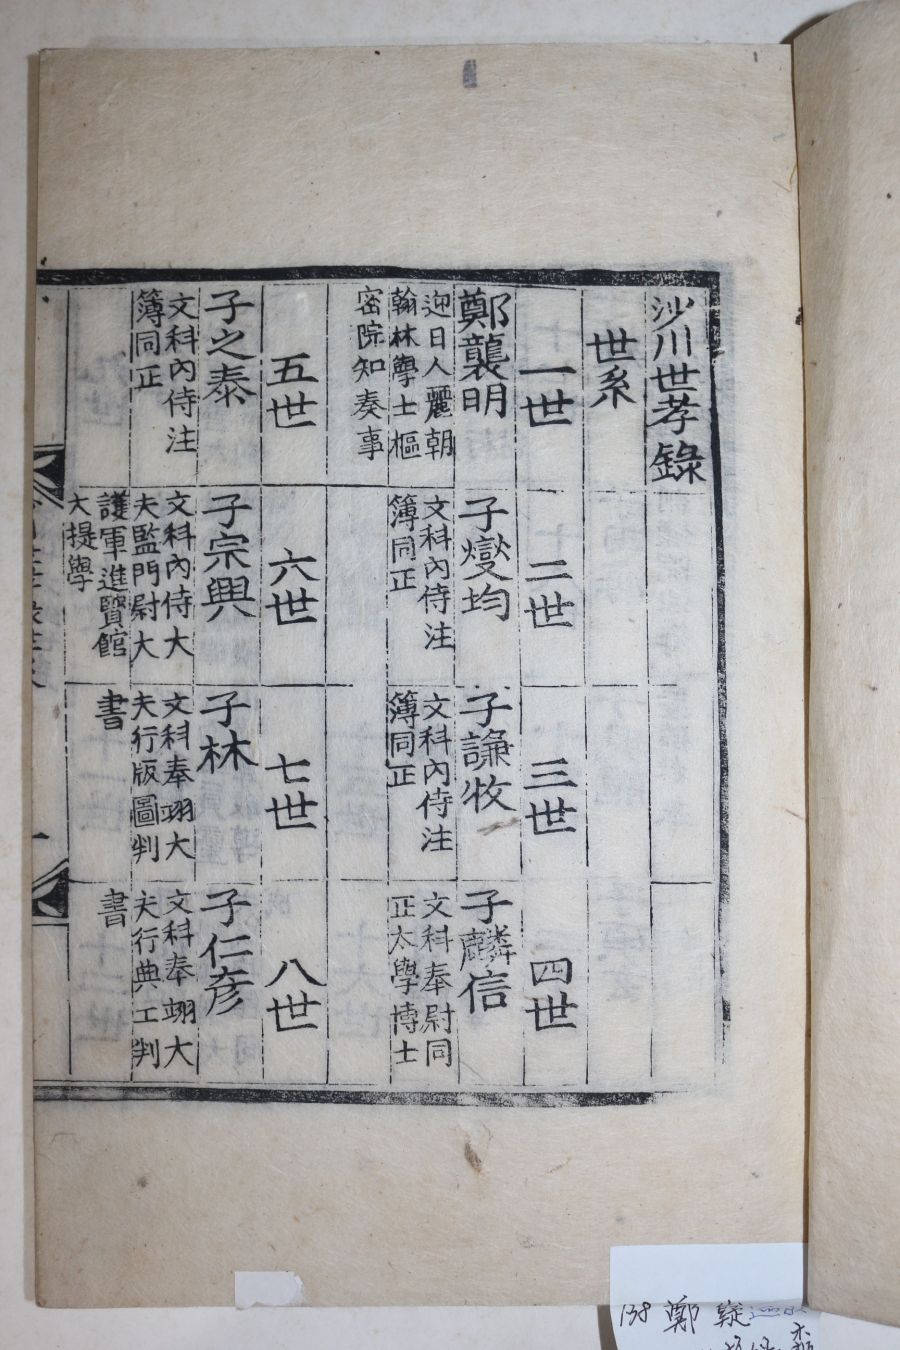 沙川世孝錄
世系
一世
二世
三世
四世
鄭襲明
迎日人麗朝
翰林學士樞
密院知奏事
子燮均
文科內侍注
簿同正
子謙牧
文科內侍注
簿同正
子麟信
文科奉尉同
正太學博士
五世
六世
七世
八世
子之泰
文科內侍注
簿同正
子宗興
文科內侍大
夫監門尉大
護軍進賢館
大提學
子林
文科奉翊大
夫行版圖判
書
子仁彦
文科奉翊大
夫行典工判
書
138 鄭